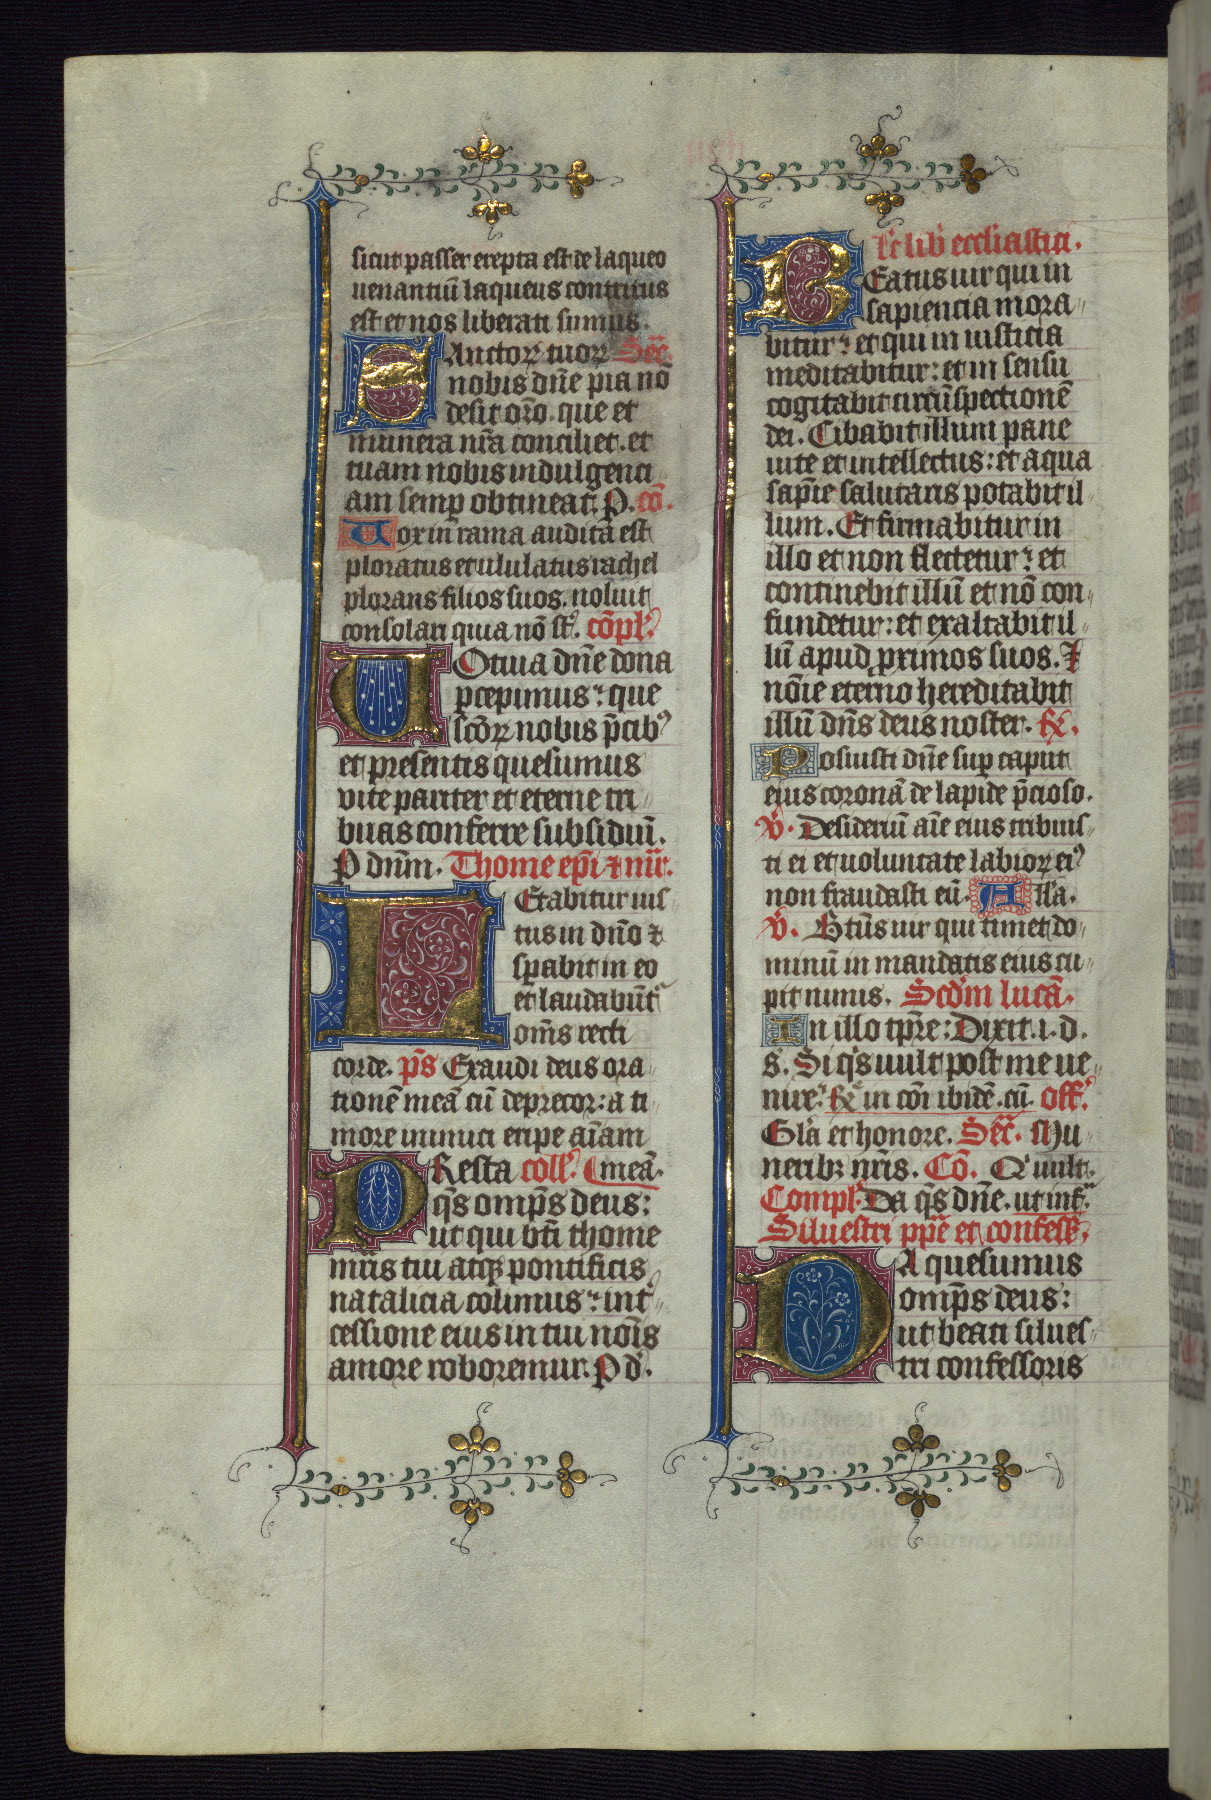 sicut passer erepta est de laqueo
uenantiū laqueus contritus
est et nos liberati sumus.
SAnctoꝝ tuoꝝ Sec̄.
nobis dn̄e pia nō
desit or̄o. que et
munera nr̄a conciliet. et
tuam nobis indulgenci
am semꝑ obtineat. P. cō.
Uox in rama audita est
ploratus et ululatus rachel
plorans filios suos. noluit
consolari quia nō st̄. cōpl'.
UOtiua dn̄e dona
ꝑcepimus: que
sc̄oꝝ nobis p̄cibꝰ
et presentis quesumus
vite pariter et eterne tri
buas conferre subsidiū.
P dn̄m. Thome ep̄i ⁊ mr̄.
LEtabitur ius
tus in dn̄o ⁊
sꝑabit in eo
et laudabūt̄
om̄s recti
corde. p̄s Exaudi deus ora
tionē meā cū deprecor: a ti
more inimici eripe aīam
PResta coll'. meā.
qs̄ omp̄s deus:
ut qui bt̄i thome
mr̄is tui atqꝫ pontificis
natalicia colimus: int̄
cessione eius in tui noīs
amore roboremur. P d.
Lc̄ lib' eccl'iastici.
BEatus uir qui in
sapiencia mora
bitur: et qui in iusticia
meditabitur: et in sensu
cogitabit circūspectionē
dei. Cibabit illum pane
uite et intellectus: et aqua
sap̄ie salutaris potabit il
lum. Et firmabitur in
illo et non flectetur: et
continebit illū et nō con
fundetur: et exaltabit il
lū apud ꝓximos suos. ⁊
noīe eterno hereditabit
illū dn̄s deus noster. ℟.
Posuisti dn̄e suꝑ caput
eius coronā de lapide p̄cioso.
℣. Desideriū aīe eius tribuis
ti ei et uoluntate labioꝝ eiꝰ
non fraudasti eū. All'a.
℣. Btūs uir qui timet do
minū in mandatis eius cu
pit nimis. Scd̄m lucā.
In illo tp̄re: Dixit. i. d.
s. Si qs̄ uult post me ue
nire. ℟ in cōi ibidē. cū. off'.
Gl'a et honore. Sec̄. Mu
neribꝫ nr̄is. Cō. Q' uult.
Compl'. Da qs̄ dn̄e. ut int̄.
Siluestri pp̄e et confess̄.
DA quesumus
omp̄s deus:
ut beati silues
tri confessoris